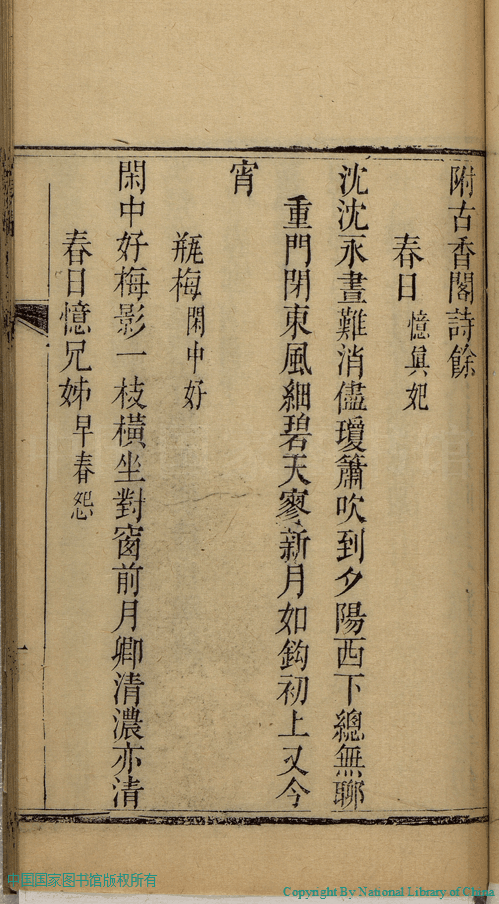 附古香閣詩餘
春日 憶真妃
沈沈永晝難消儘瓊簫吹到夕陽西下總無聊
重門閉東風細碧天寥新月如鈎初上又今
宵
瓶梅 閑中好
閑中好梅影一枝橫坐對窗前月卿清濃亦清
春日憶兄姊 早春怨
中国国家图书馆版权所有
Copyright By National Library of China